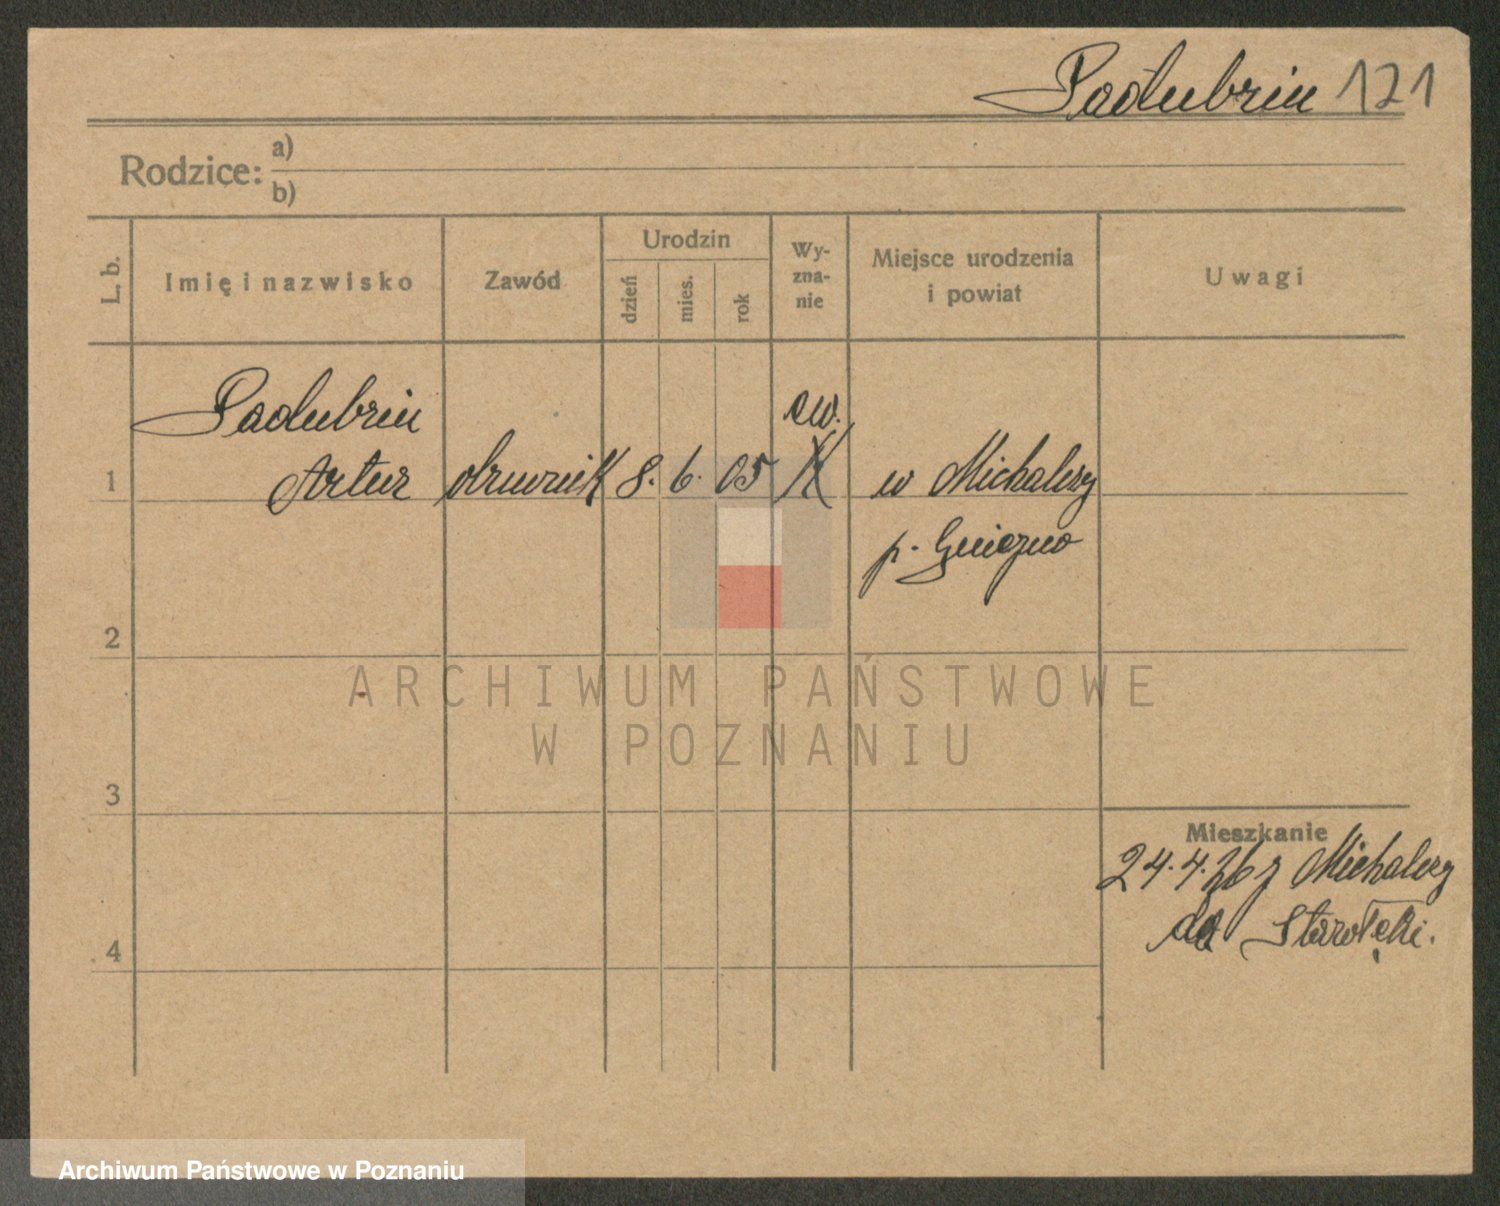 Padubrin 121
Rodzice:
a)
b)
L. b.
Imię i nazwisko
Zawód
Urodzin
dzień
mies.
rok
Wy-
zna-
nie
Miejsce urodzenia
i powiat
Uwagi
Padubrin
ew.
1
Artur
8. 6. 05
w Michalczy
p. Gniezno
2
3
4
Mieszkanie
24.4.26 z Michalczy
do Starołęki.
ARCHIWUM PAŃSTWOWE
W POZNANIU
Archiwum Państwowe w Poznaniu